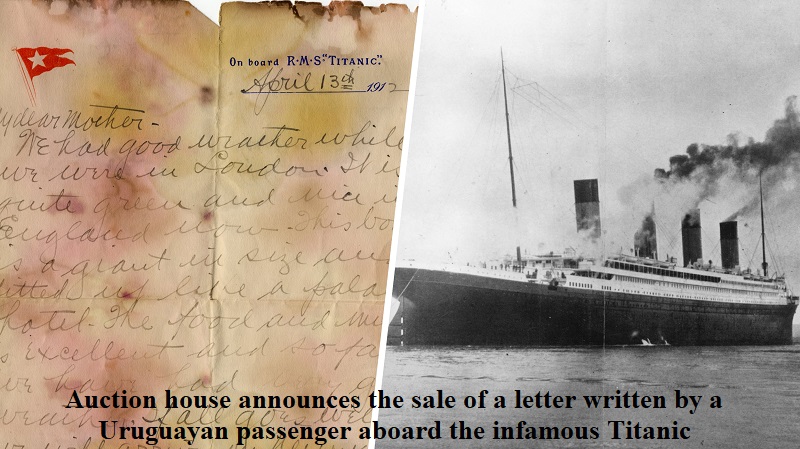 On board R·M·S "TITANIC."
April 13th 1912
My dear Mother -
We had good weather while
we were in London. It is
quite green and nice i
England now. This bo
is a giant in size an
fitted up like a pala
hotel. The food and mu
is excellent and so fa
we have had
weather. If all goes well
we will arrive
Auction house announces the sale of a letter written by a
Uruguayan passenger aboard the infamous Titanic